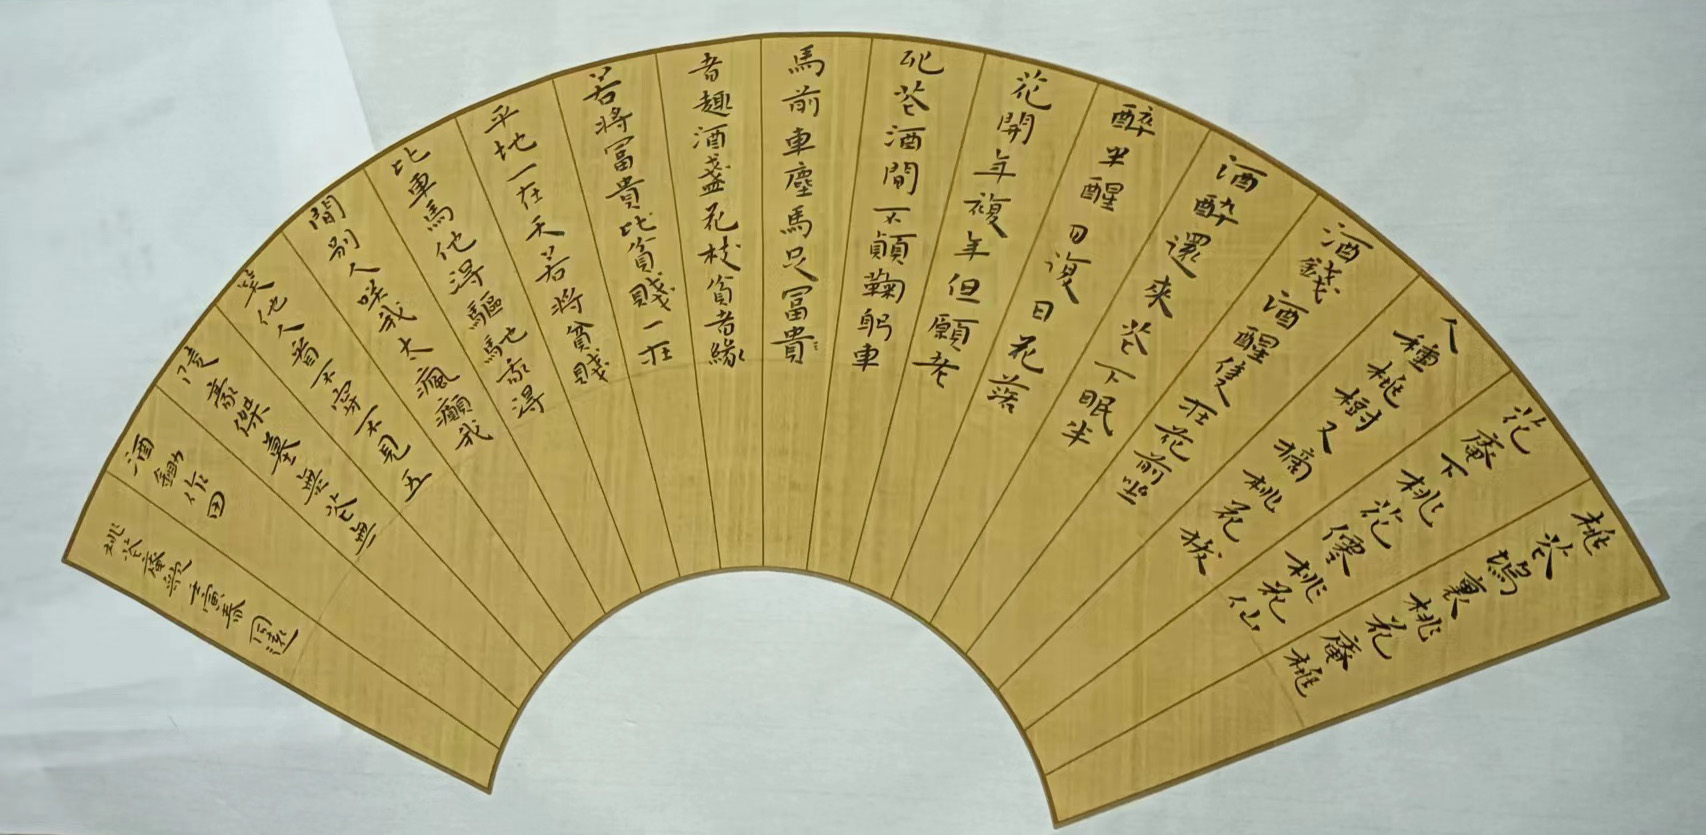 桃花塢裏桃花庵桃
花庵下桃花僊桃花仙
人種桃樹又摘桃花換
酒錢酒醒隻在花前坐
酒醉還來花下眠半
醉半醒日復日花落
花開年複年但願老
死花酒間不顛鞠躬車
馬前車塵馬足冨貴
者趣酒盞花枝貧者緣
若將冨貴比貧賤一在
平地一在天若將貧賤
比車馬他得驅馳我得
間別人咲我太瘋癲我
笑他人看不穿不見五
陵豪傑墓無花無
酒鋤作田
桃花庵歌壬寅春